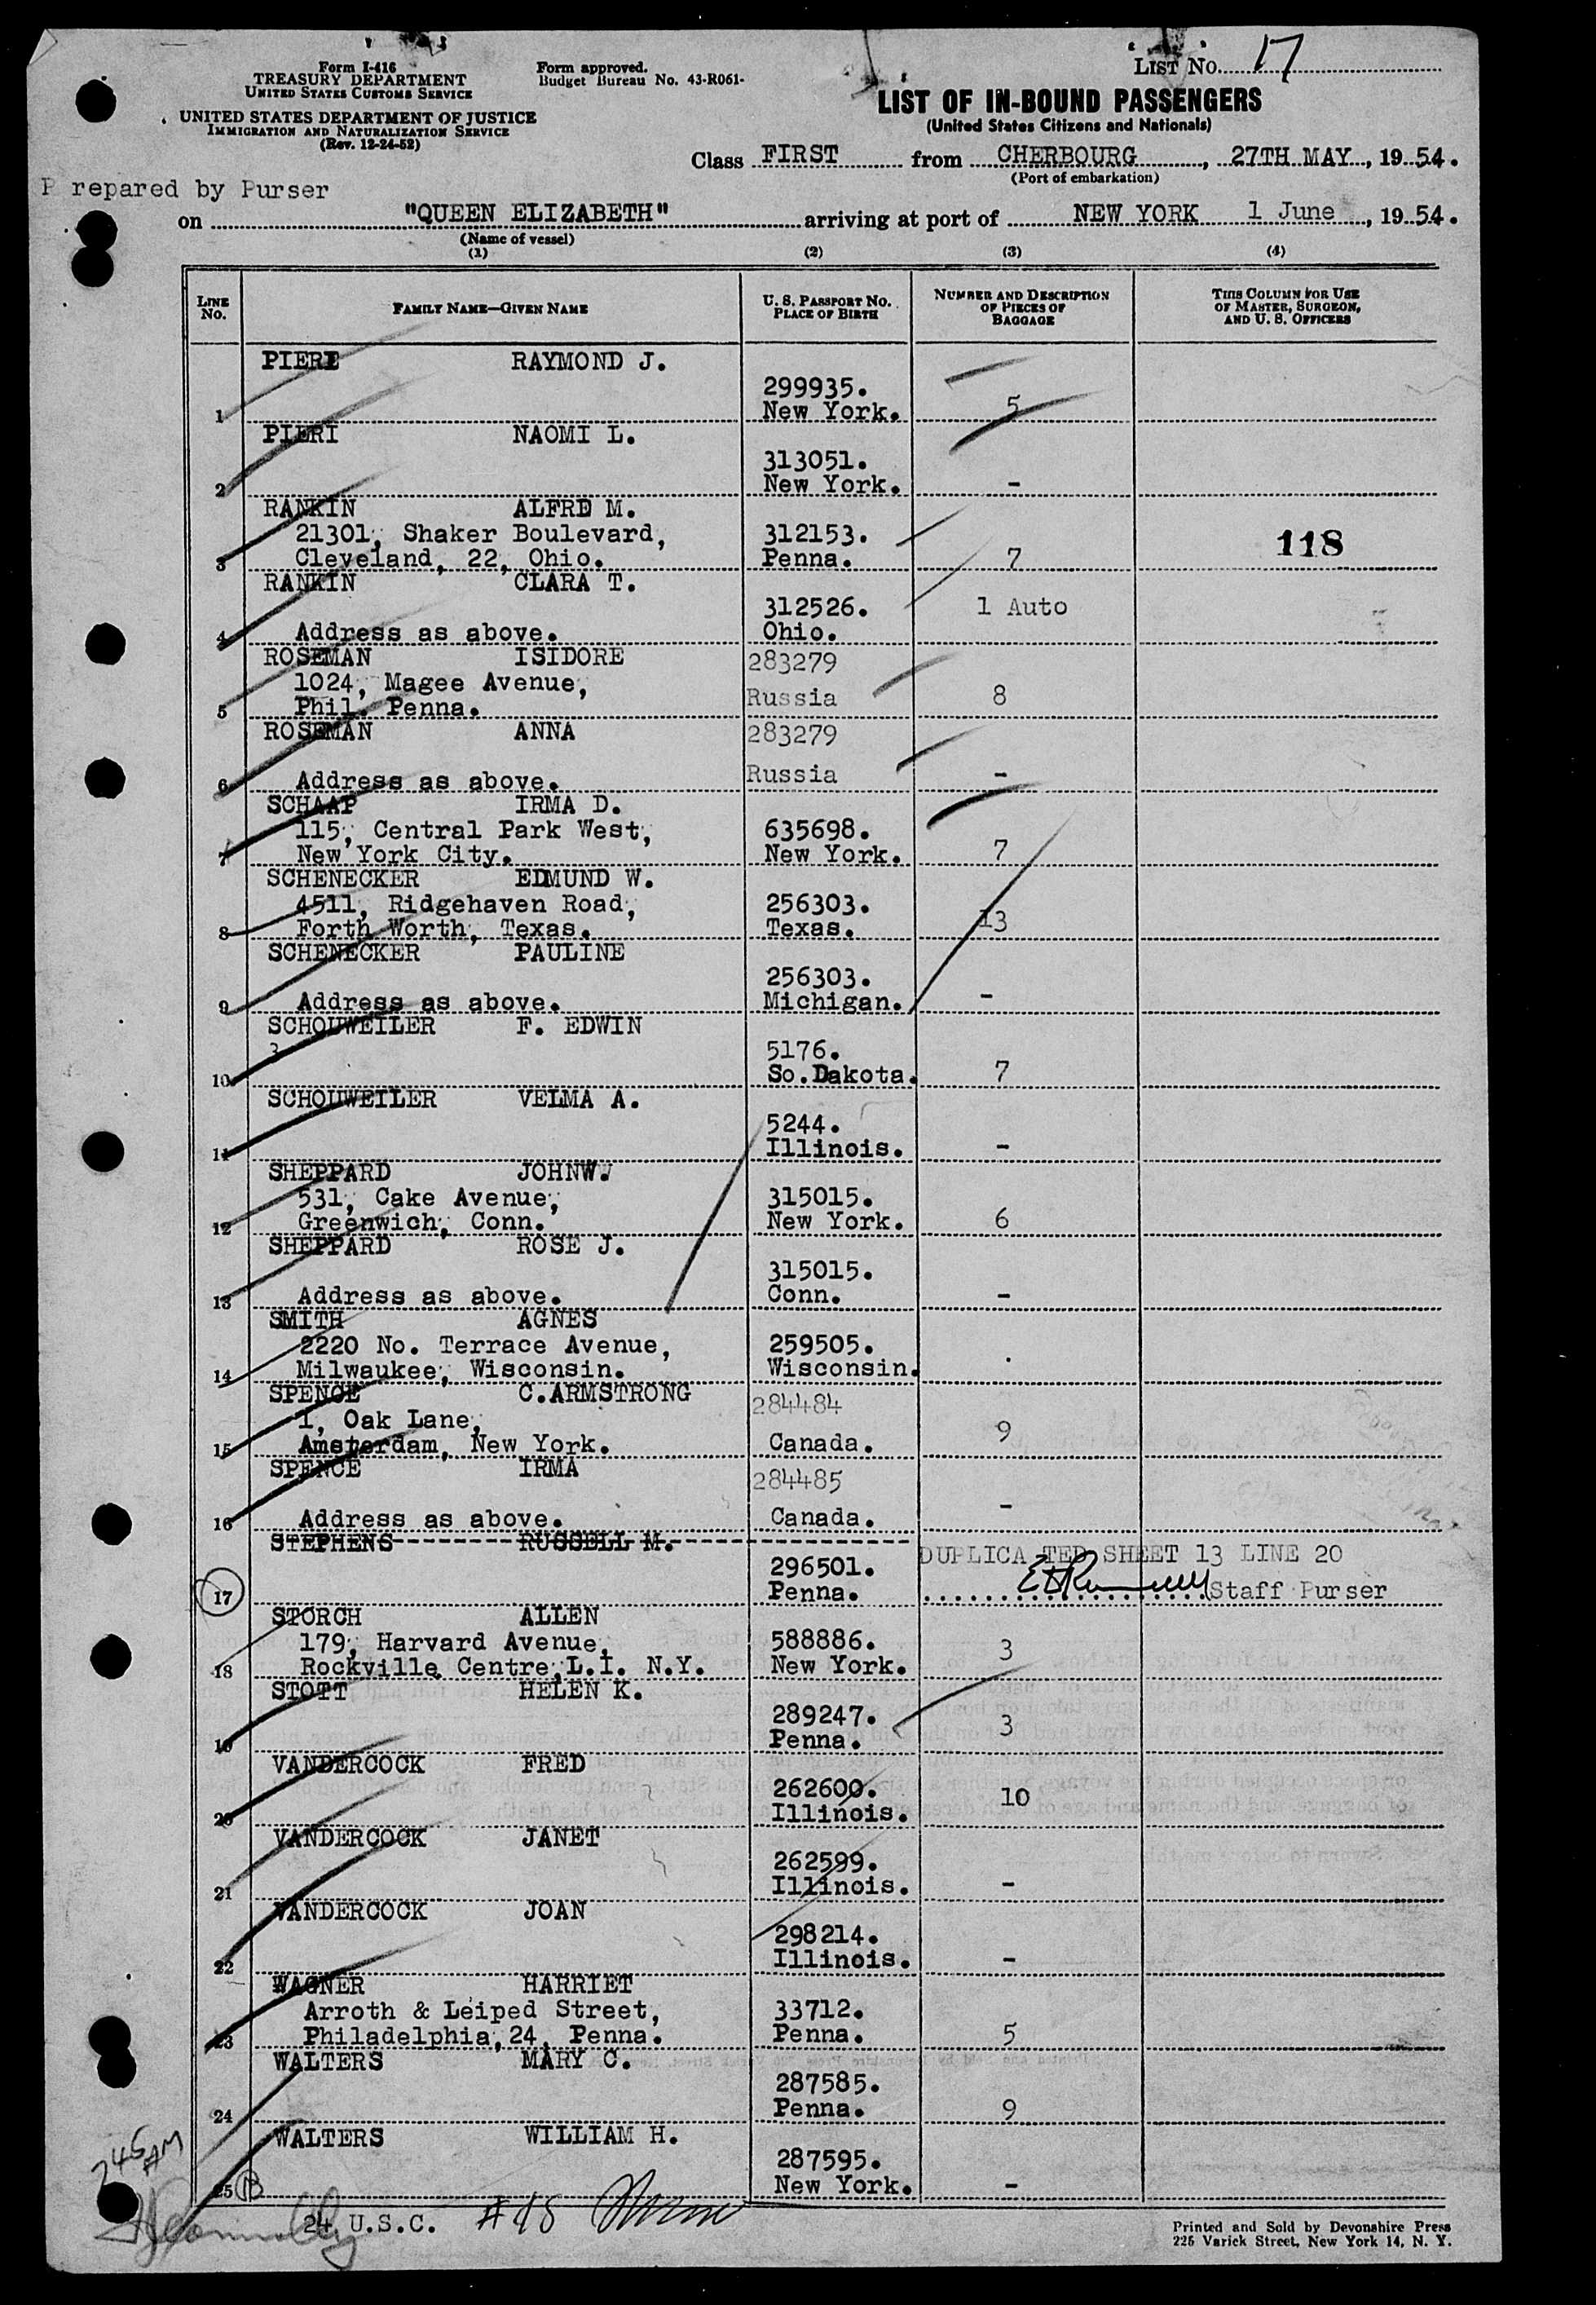 Form I-416
TREASURY DEPARTMENT
UNITED STATES CUSTOMS SERVICE
UNITED STATES DEPARTMENT OF JUSTICE
IMMIGRATION AND NATURALIZATION SERVICE
(Rev. 12-24-52)
Form approved.
Budget Bureau No. 43-R061-
LIST NO. 17
LIST OF IN-BOUND PASSENGERS
(United States Citizens and Nationals)
Class FIRST from CHERBOURG, 27TH MAY, 19 54.
(Port of embarkation)
Prepared by Purser
on "QUEEN ELIZABETH" arriving at port of NEW YORK 1 June, 19 54.
(Name of vessel)
(1) (2) (3) (4)
LINE NO.
FAMILY NAME—GIVEN NAME
U. S. PASSPORT NO.
PLACE OF BIRTH
NUMBER AND DESCRIPTION
OF PIECES OF
BAGGAGE
THIS COLUMN FOR USE
OF MASTER, SURGEON,
AND U. S. OFFICERS
PIERI RAYMOND J.
299935.
1 New York. 5
PIERI NAOMI L.
313051.
2 New York. -
RANKIN ALFRD M.
21301, Shaker Boulevard, 312153. 118
3 Cleveland, 22, Ohio. Penna. 7
RANKIN CLARA T.
312526. 1 Auto
4 Address as above. Ohio.
ROSEMAN ISIDORE 283279
1024, Magee Avenue, Russia 8
5 Phil. Penna.
ROSEMAN ANNA 283279
6 Address as above. Russia -
SCHAAP IRMA D.
115, Central Park West, 635698.
7 New York City. New York. 7
SCHENECKER EDMUND W.
4511, Ridgehaven Road, 256303. 13
8 Forth Worth, Texas. Texas.
SCHENECKER PAULINE
256303.
9 Address as above. Michigan. -
SCHOUWEILER F. EDWIN
5176.
10 So.Dakota. 7
SCHOUWEILER VELMA A.
5244.
11 Illinois. -
SHEPPARD JOHNW.
531, Cake Avenue, 315015.
12 Greenwich, Conn. New York. 6
SHEPPARD ROSE J.
315015.
13 Address as above. Conn. -
SMITH AGNES
2220 No. Terrace Avenue, 259505.
14 Milwaukee, Wisconsin. Wisconsin. .
SPENCE C.ARMSTRONG 284484
1, Oak Lane, 9
15 Amsterdam, New York. Canada.
SPENCE IRMA 284485
16 Address as above. Canada. -
STEPHENS RUSSELL M. DUPLICA TED SHEET 13 LINE 20
296501.
17 Penna. Staff Purser
STORCH ALLEN
179, Harvard Avenue, 588886. 3
18 Rockville Centre,L.I. N.Y. New York.
STOTT HELEN K.
289247. 3
19 Penna.
VANDERCOCK FRED
262600. 10
20 Illinois.
VANDERCOCK JANET
262599.
21 Illinois. -
VANDERCOCK JOAN
298214.
22 Illinois. -
WAGNER HARRIET
Arroth & Leiped Street, 33712.
23 Philadelphia,24, Penna. Penna. 5
WALTERS MARY C.
287585.
24 Penna. 9
WALTERS WILLIAM H.
287595.
25 New York. -
245 AM
24 U.S.C.
Printed and Sold by Devonshire Press
225 Varick Street, New York 14, N. Y.